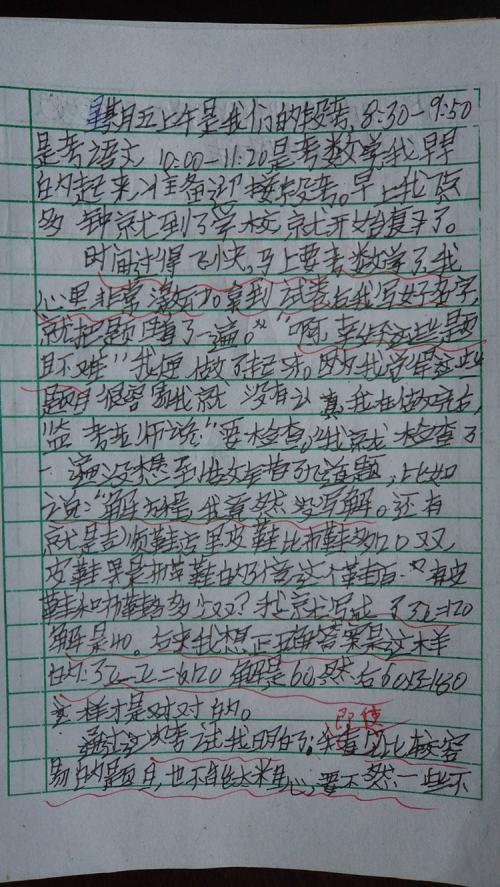 星期五上午是我们的段考,8:30-9:50
是考语文 10:00-11:20是考数学,我早早
的起来,准备迎接段考。早上我7点
多钟就到了学校 就开始复习了。
时间过得飞快,马上要考数学了,我
心里非常激动 拿到试卷后我写好名字,
就把题目看了一遍。"啊,幸好这些题
目不难"我便做了起来。因为我觉得这些
题目很容易我就没有认真,我在做好完后,
监考老师说"要检查。"我就检查了
一遍没想到 错了几道题,比如
说:"解方程,我竟然没写解。还有
就是吉顺鞋店里皮鞋比布鞋多120双,
皮鞋 是布鞋的3倍 这个鞋店 有皮
鞋和布鞋多少双?我就写成了3x=120
解是40。后来我想正确答案是这样
的:3x-x=120 解是60,然后60x3=180
这样才是对的。
通过这次考试我明白了:即使 是比较容
易的题目,也不能太粗心,要不然一些不